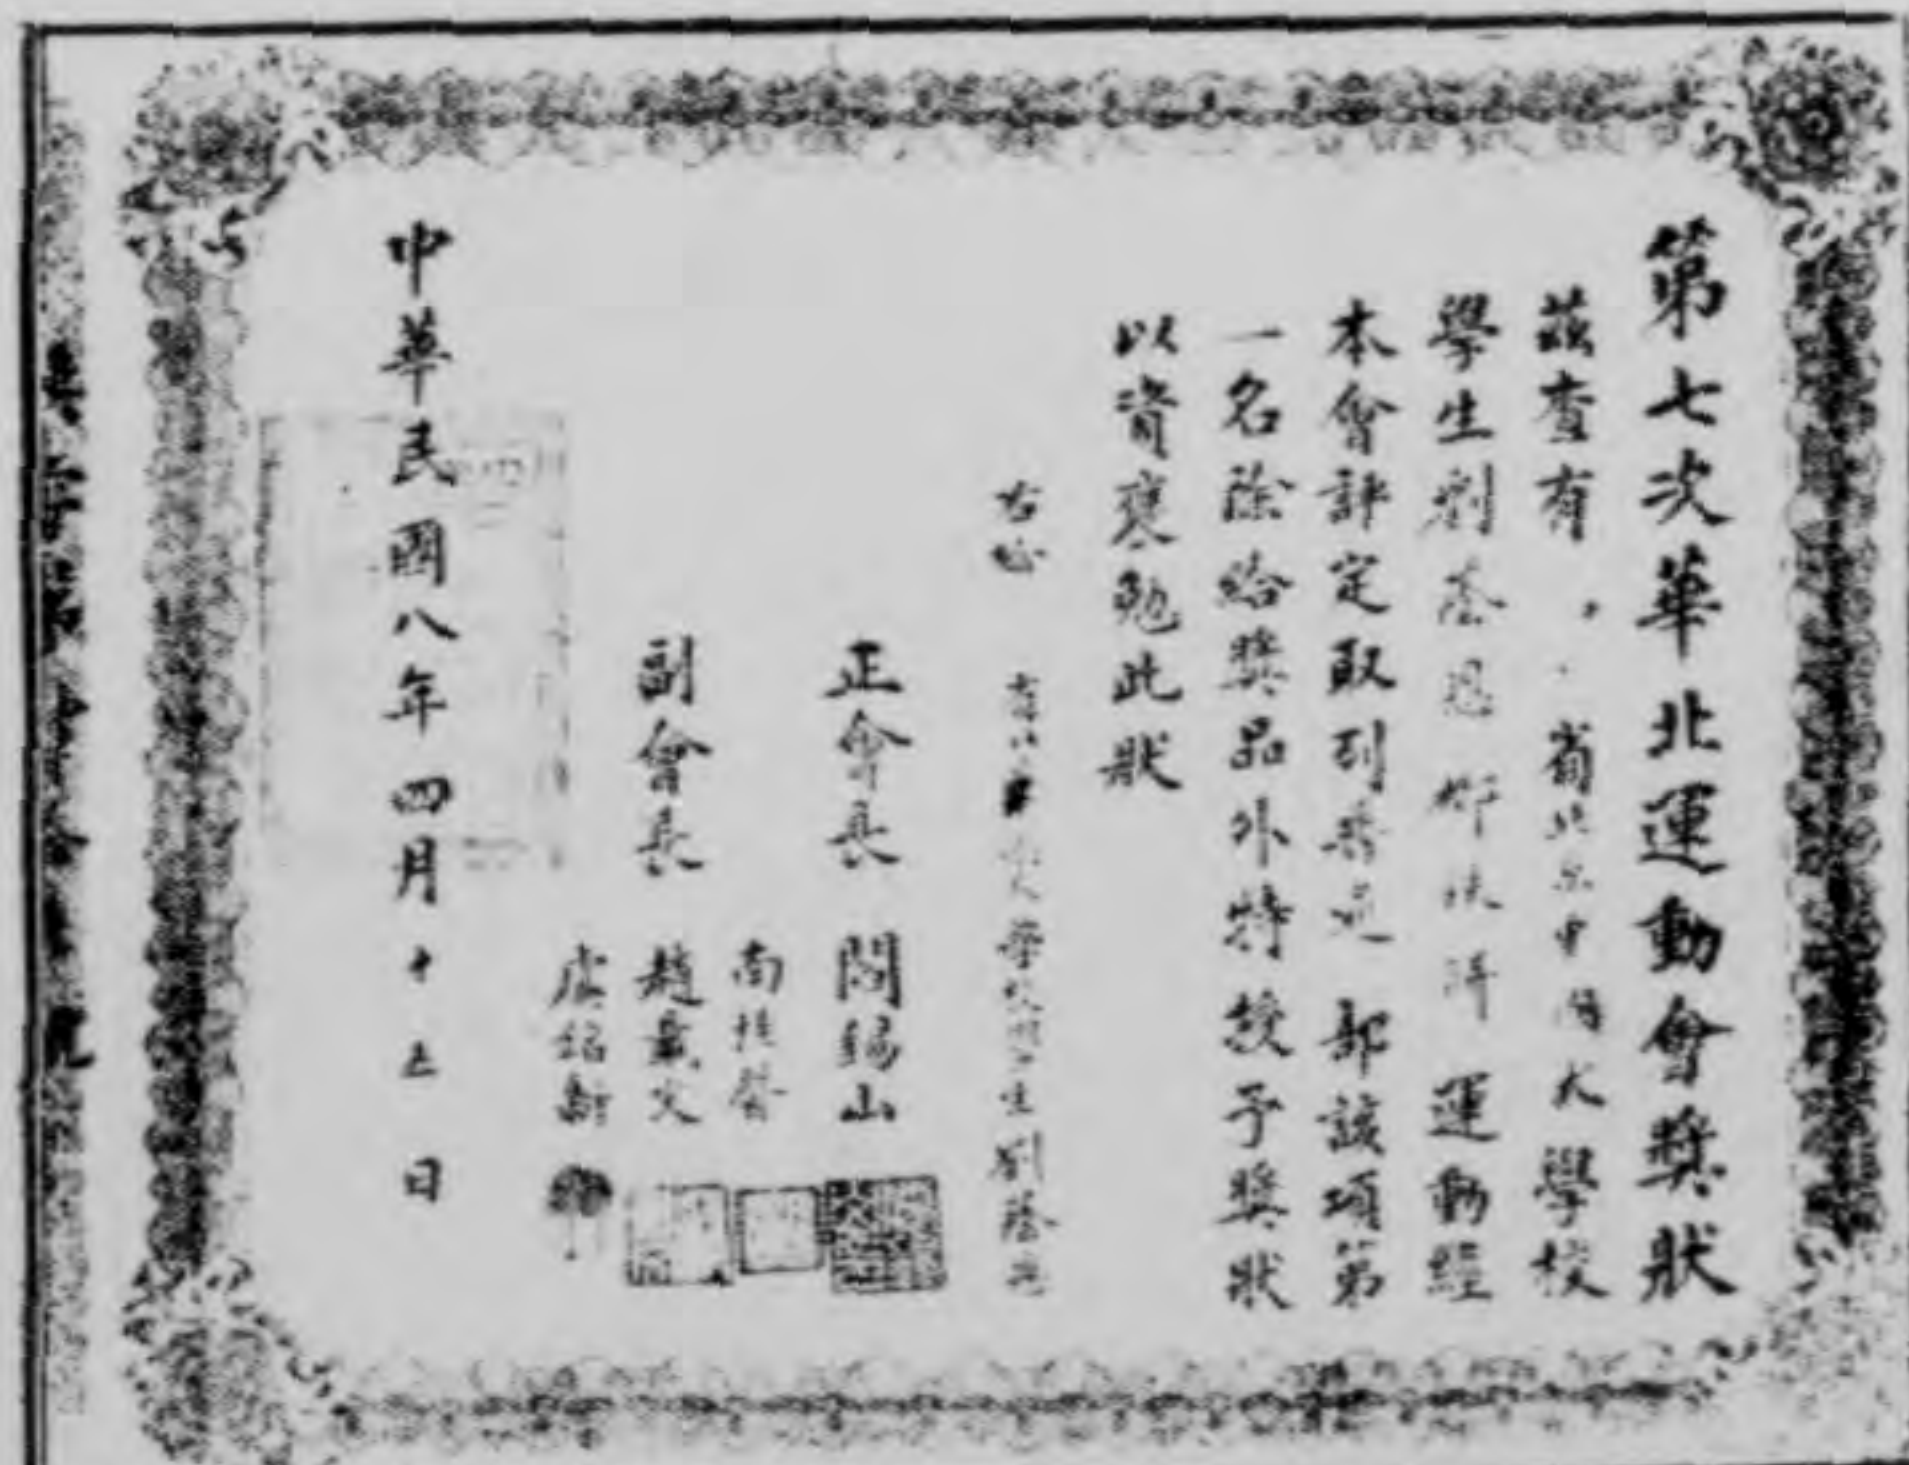 第七次華北運動會獎狀
茲查有 省北京中國大學校
學生劉蔭恩 運動經
本會評定取列 部該項第
一名除給獎品外特授予獎狀
以資褒勉此狀
右給 學校學生劉蔭恩
正會長 閻錫山
南桂馨
副會長 趙戴文
虞銘新
中華民國八年四月十五日